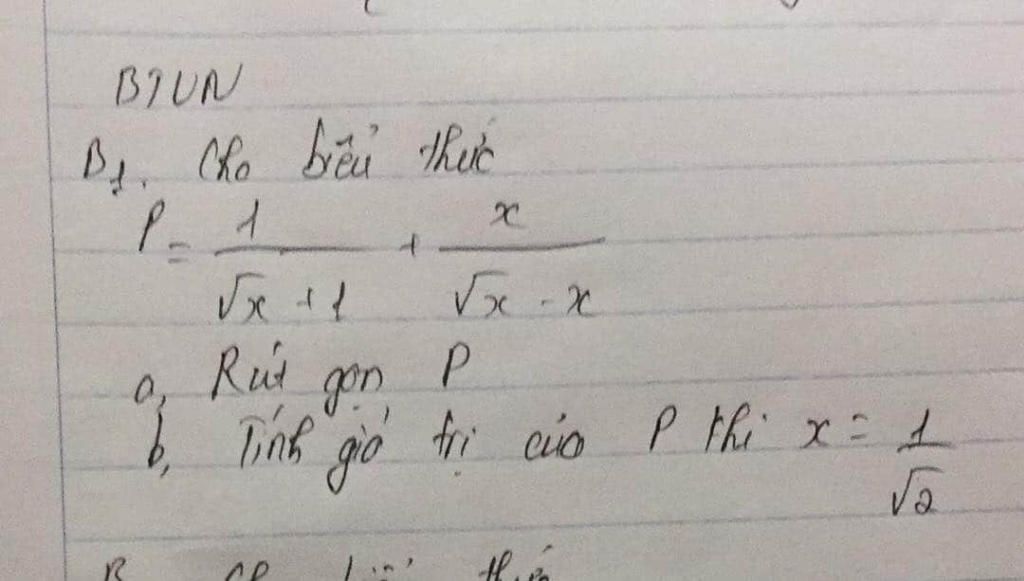 BTVN
B1. Cho biểu thức
P = 1/(√x + 1) + x/(√x - x)
a, Rút gọn P
b, Tính giá trị của P khi x = 1/√2